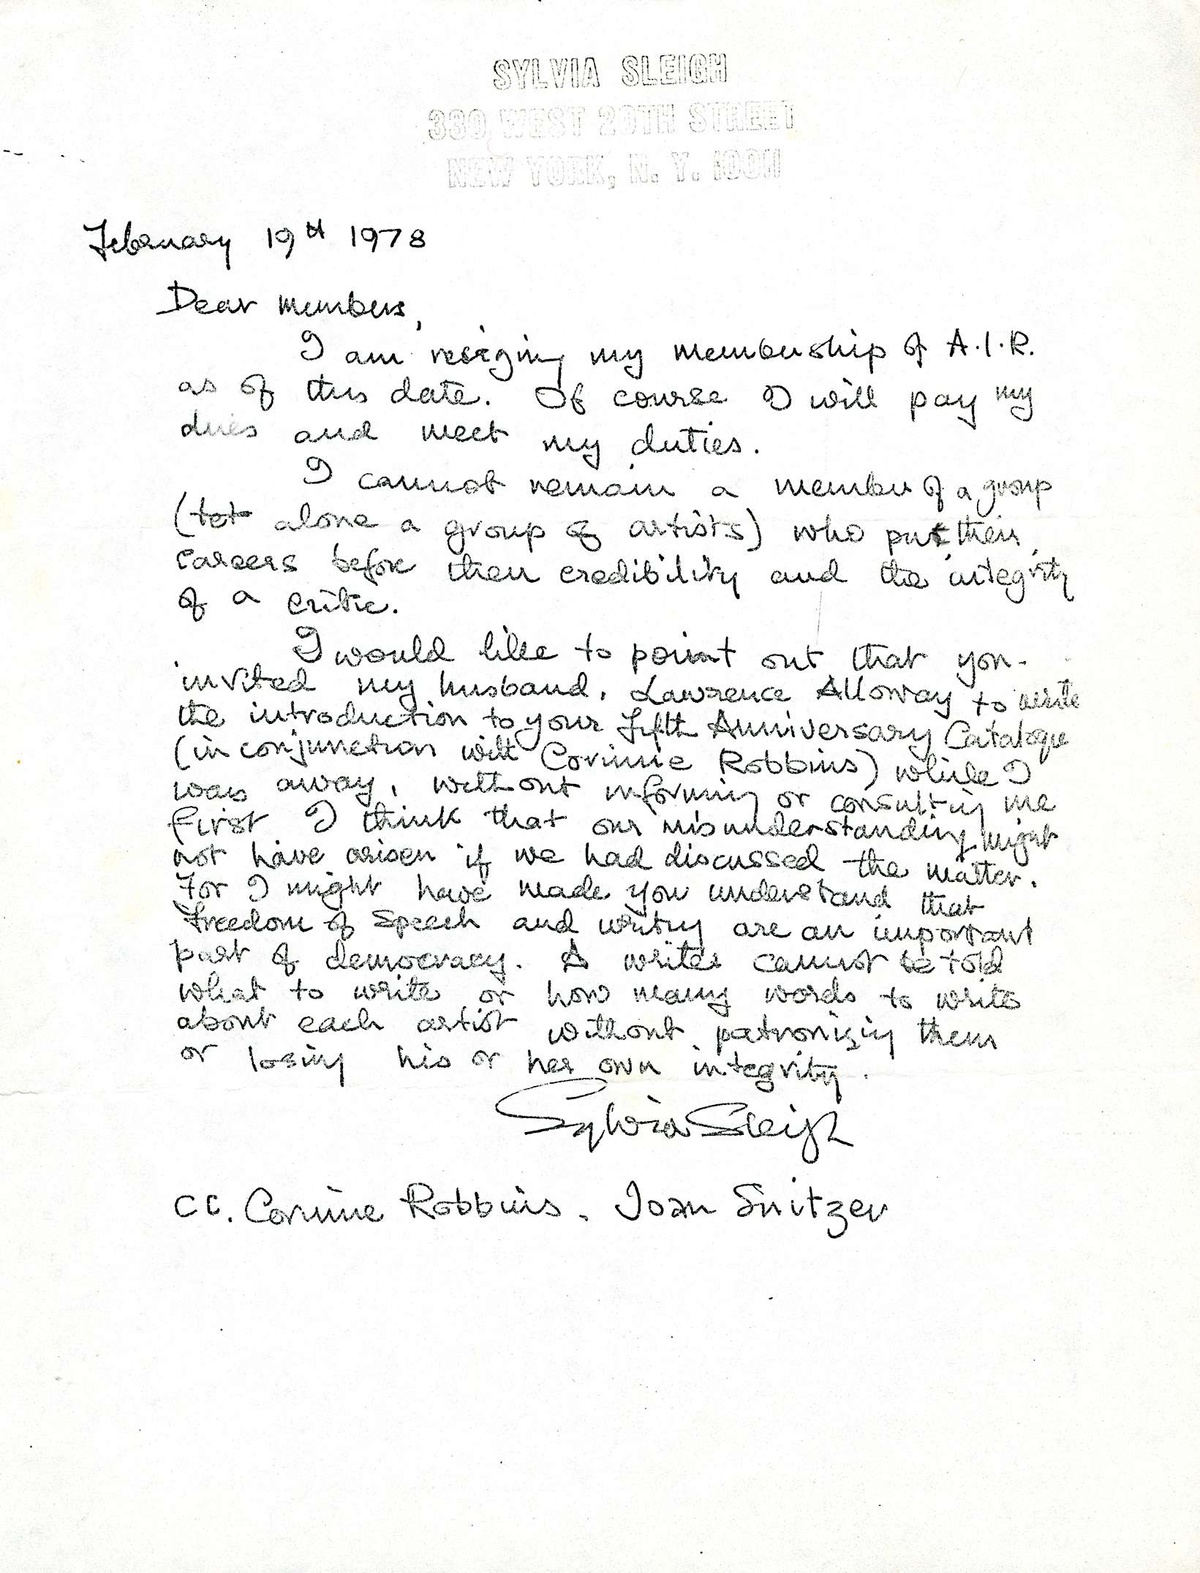 SYLVIA SLEIGH
330 WEST 20TH STREET
NEW YORK, N. Y. 10011
February 19th 1978
Dear Members,
I am resigning my membership of A.I.R.
as of this date. Of course I will pay my
dues and meet my duties.
I cannot remain a member of a group
(tet alone a group of artists) who put their
careers before their credibility and the integrity
of a critic.
I would like to point out that you
invited my husband, Lawrence Alloway to write
the introduction to your Fifth Anniversary Catalogue
(in conjunction with Corinne Robbins) while I
was away, without informing or consulting me
first I think that our misunderstanding might
not have arisen if we had discussed the matter.
For I might have made you understand that
freedom of speech and writing are an important
part of democracy. A writer cannot be told
what to write or how many words to write
about each artist without patronizing them
or losing his or her own integrity.
Sylvia Sleigh
cc. Corinne Robbins. Joan Snitzer